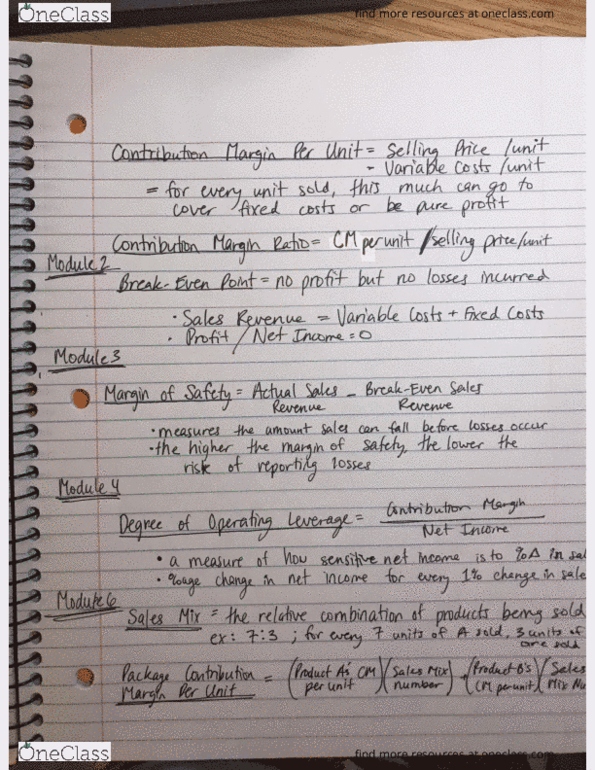 OneClass
find more resources at oneclass.com
Contribution Margin Per Unit = Selling Price /unit
- Variable Costs /unit
= for every unit sold, this much can go to
cover fixed costs or be pure profit
Contribution Margin Ratio = CM per unit / selling price/unit
Module 2
Break-Even Point = no profit but no losses incurred
· Sales Revenue = Variable Costs + Fixed Costs
· Profit / Net Income = 0
Module 3
Margin of Safety = Actual Sales - Break-Even Sales
Revenue Revenue
· measures the amount sales can fall before losses occur
· the higher the margin of safety, the lower the
risk of reporting losses
Module 4
Degree of Operating Leverage = Contribution Margin
Net Income
· a measure of how sensitive net income is to %Δ in sal
· %age change in net income for every 1% change in sale
Module 6
Sales Mix = the relative combination of products being sold
ex: 7:3 ; for every 7 units of A sold, 3 units of
are sold
Package Contribution = (Product A's CM) (Sales Mix) (Product B's) (Sales
Margin Per Unit per unit number CM per unit Mix Nu
OneClass
find more resources at oneclass.com